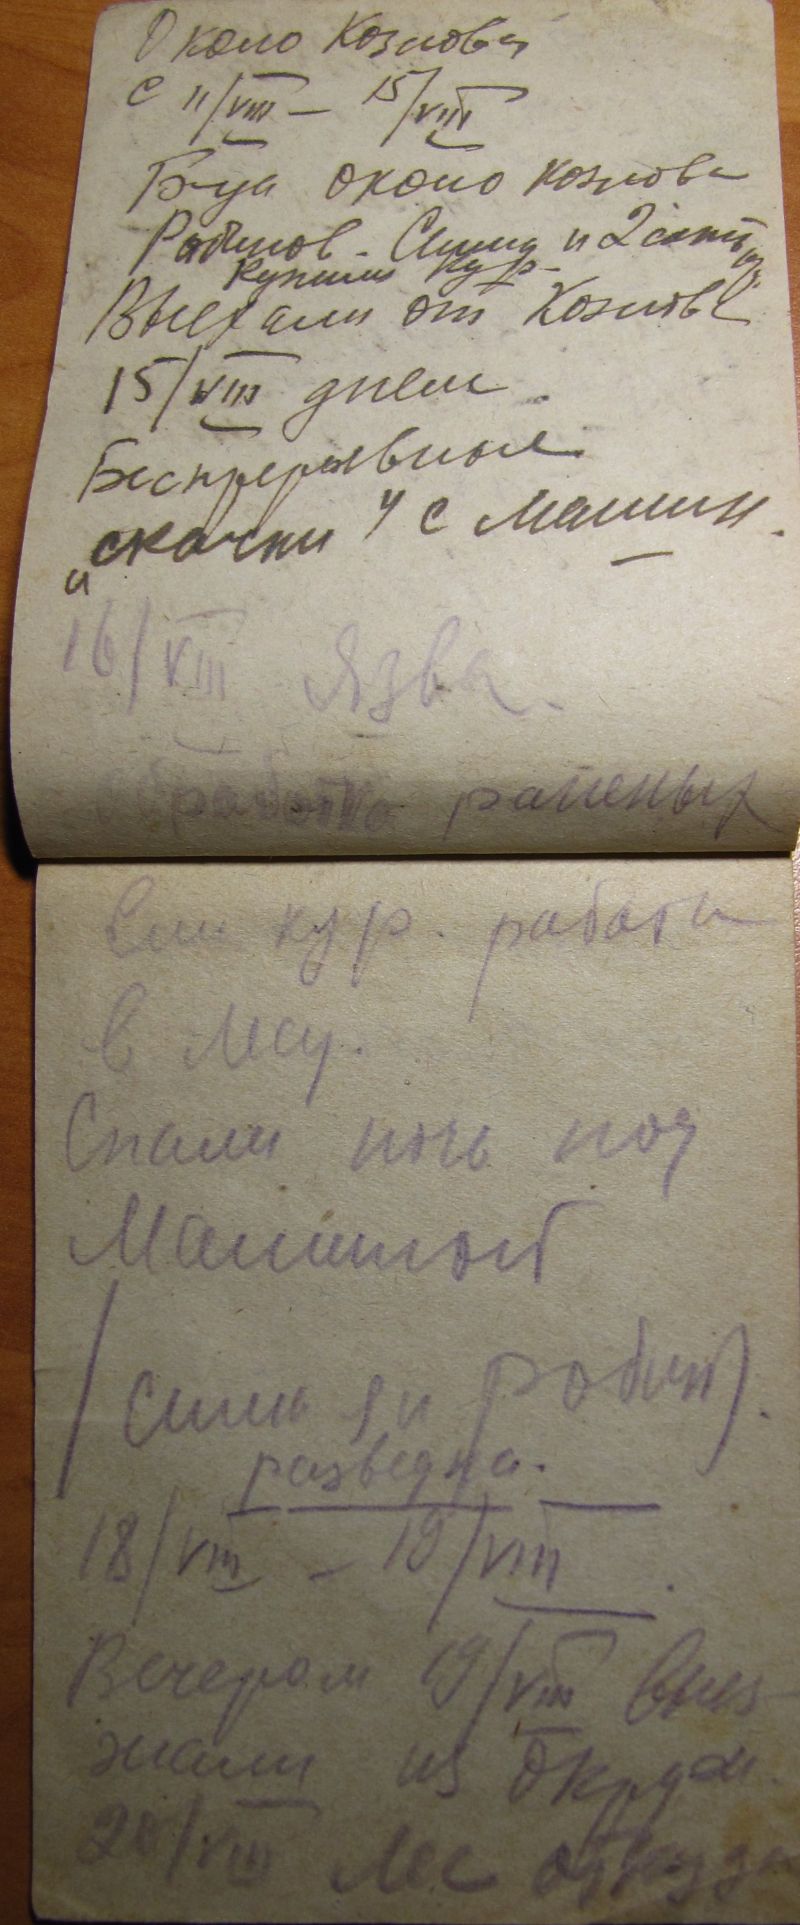 Около Козлова
с 11/VIII – 15/VIII
около Козлова
и 2
Купили кур.
Выехали от Козлова
15/VIII днем.
Беспрерывные
"скачки" с машин.
16/VIII Язва.
обработка раненых
Ели кур. работа
в лесу.
Спали ночь под
Машиной
разведка.
18/VIII – 19/VIII.
Вечером 19/VIII выез-
жали из окруж.
20/VIII Лес откуда